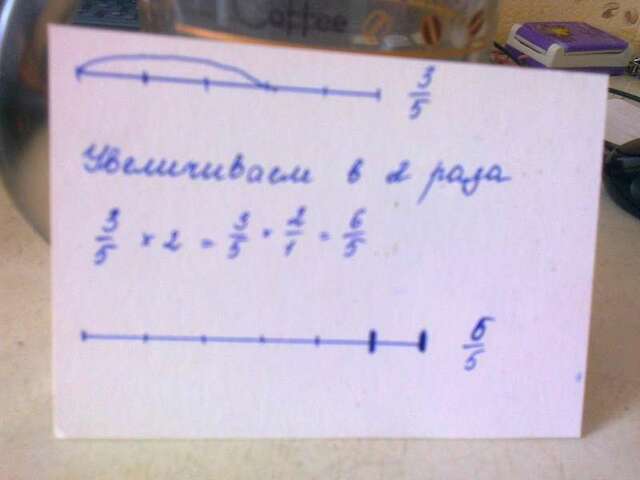 Coffee
3/5
Увеличиваем в 2 раза
3/5 × 2 = 3/5 × 2/1 = 6/5
6/5